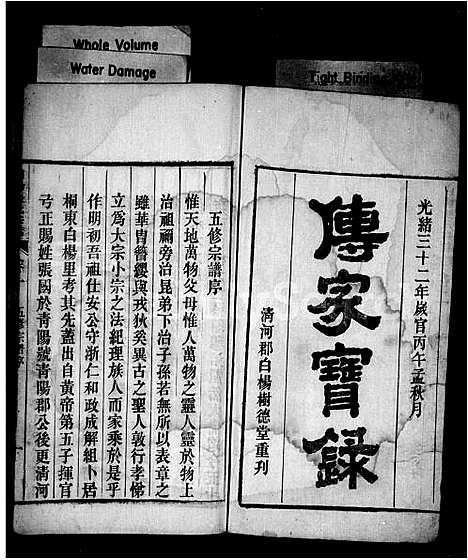 Whole Volume
Water Damage
Tight Binding
光緒三十二年歲官丙午孟秋月
傳家寶錄
清河郡白楊樹德堂重刋
五修宗譜序
惟天地萬物父母惟人萬物之靈人靈於物上
治祖禰旁治昆弟下治子孫若無所以表章之
雖華胄簪纓與戎狄奚異古之聖人敦行孝悌
立爲大宗小宗之法紀理族人而家乘於是乎
作明初吾祖仕安公守浙仁和政成解組卜居
桐東白楊里考其先蓋出自黃帝第五子揮官
弓正賜姓張國於靑陽號靑陽郡公後更淸河